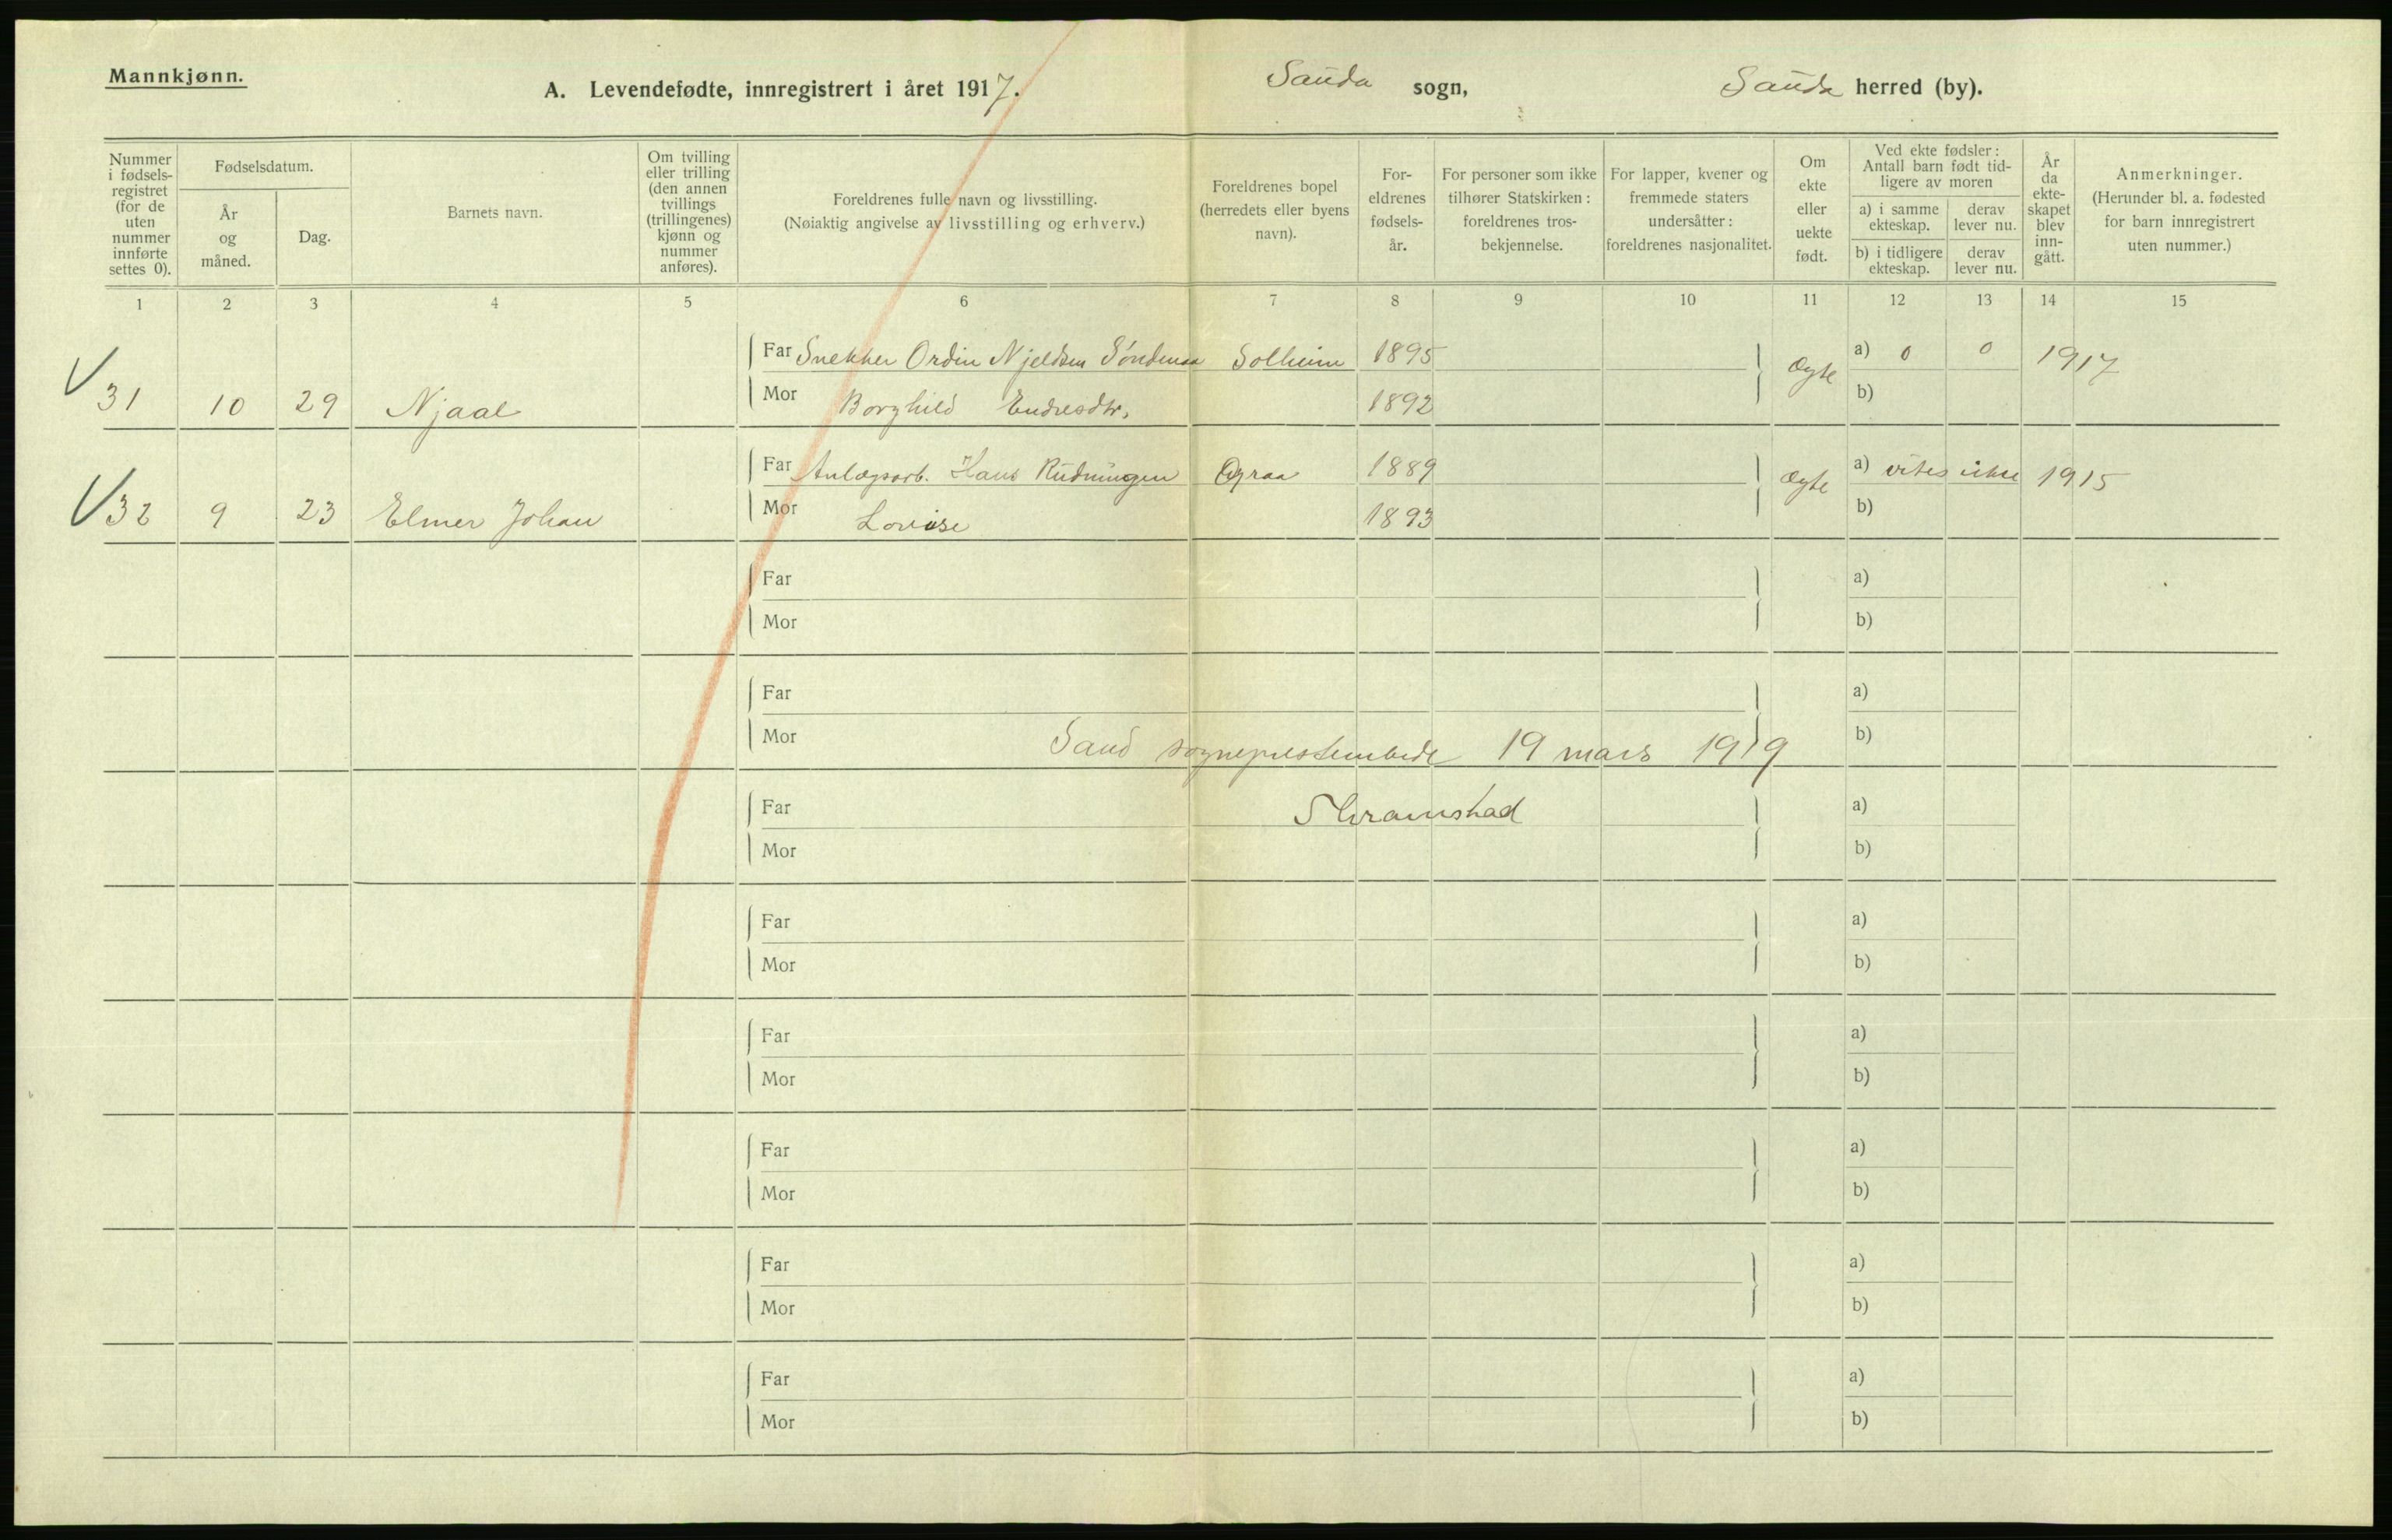 Mannkjønn.
A. Levendefødte, innregistrert i året 1917. Sauda sogn, Sauda herred (by).
Nummer i fødsels-registret (for de uten nummer innførte settes 0).
Fødselsdatum.
År og måned.
Dag.
Barnets navn.
Om tvilling eller trilling (den annen tvillings (trillingenes) kjønn og nummer anføres).
Foreldrenes fulle navn og livsstilling.
(Nøiaktig angivelse av livsstilling og erhverv.)
Foreldrenes bopel (herredets eller byens navn).
For-eldrenes fødsels-år.
For personer som ikke tilhører Statskirken: foreldrenes tros-bekjennelse.
For lapper, kvener og fremmede staters undersåtter: foreldrenes nasjonalitet.
Om ekte eller uekte født.
Ved ekte fødsler: Antall barn født tid-ligere av moren
a) i samme ekteskap. derav lever nu.
b) i tidligere ekteskap. derav lever nu.
År da ekte-skapet blev inn-gått.
Anmerkninger.
(Herunder bl. a. fødested for barn innregistrert uten nummer.)
1 2 3 4 5 6 7 8 9 10 11 12 13 14 15
Far Snekker Ordin Njeldsen Solheim 1895 Ægte a) 0 0 1917
31 10 29 Njaal Mor Borghild Endresdtr. 1892 b)
Far Anlægsarb. Hans Rudningen 1889 Ægte a) vites ikke 1915
32 9 23 Elmer Johan Mor Lovise 1893 b)
Far a)
Mor b)
Far a)
Mor b)
Sand sogneprestembede 19 mars 1919
Far a)
Skramstad
Mor b)
Far a)
Mor b)
Far a)
Mor b)
Far a)
Mor b)
Far a)
Mor b)
Far a)
Mor b)